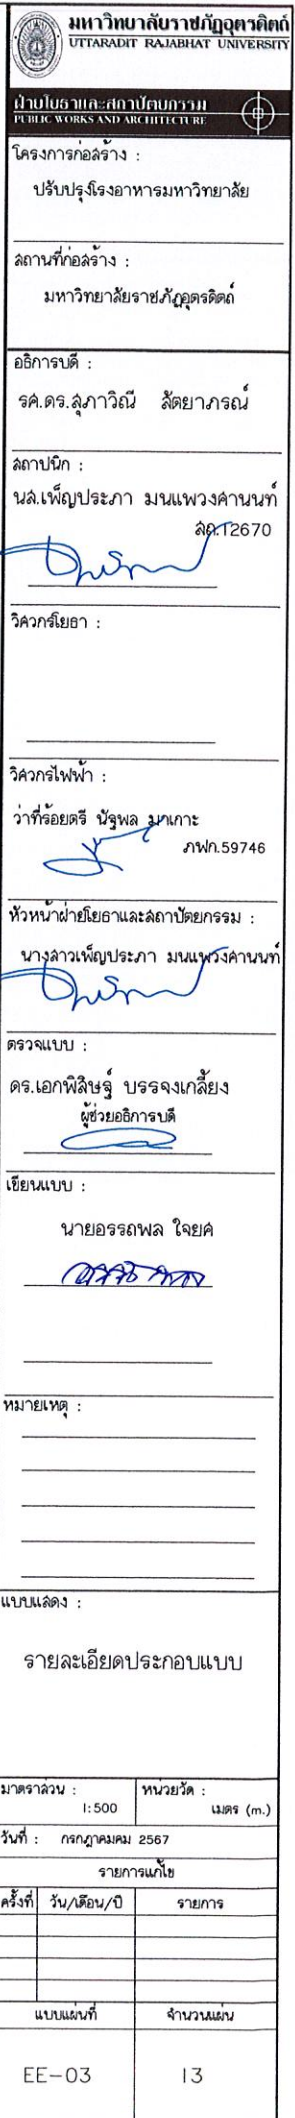 มหาวิทยาลัยราชภัฏอุตรดิตถ์
UTTARADIT RAJABHAT UNIVERSITY
ฝ่ายโยธาและสถาปัตยกรรม
PUBLIC WORKS AND ARCHITECTURE
โครงการก่อสร้าง :
ปรับปรุงโรงอาหารมหาวิทยาลัย
สถานที่ก่อสร้าง :
มหาวิทยาลัยราชภัฏอุตรดิตถ์
อธิการบดี :
รศ.ดร.สุภาวิณี สัตยาภรณ์
สถาปนิก :
นส.เพ็ญประภา มนแพวงศานนท์
สถ.12670
วิศวกรโยธา :
วิศวกรไฟฟ้า :
ว่าที่ร้อยตรี นัฐพล มาเกาะ
ภฟก.59746
หัวหน้าฝ่ายโยธาและสถาปัตยกรรม :
นางสาวเพ็ญประภา มนแพวงศานนท์
ตรวจแบบ :
ดร.เอกพิสิษฐ์ บรรจงเกลี้ยง
ผู้ช่วยอธิการบดี
เขียนแบบ :
นายอรรถพล ใจยศ
หมายเหตุ :
แบบแสดง :
รายละเอียดประกอบแบบ
มาตราส่วน : หน่วยวัด :
1:500 เมตร (m.)
วันที่ : กรกฎาคมคม 2567
รายการแก้ไข
ครั้งที่ วัน/เดือน/ปี รายการ
แบบแผ่นที่ จำนวนแผ่น
EE-03 13